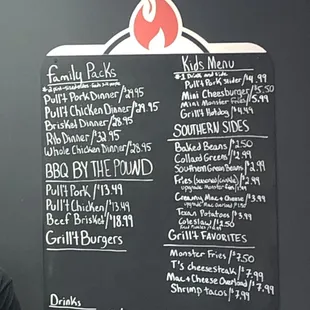 Family Packs
Pull't Pork Dinner/29.95
Pull't Chicken Dinner/29.95
Brisket Dinner/28.95
Rib Dinner/32.95
Whole Chicken Dinner/28.95
BBQ BY THE POUND
Pull't Pork/$13.49
Pull't Chicken/13.49
Beef Brisket/$18.99
Grill't Burgers
Drinks
Kids Menu
*1 Drink and side
Pull't Pork Slider/$4.99
Mini Cheesburger/5.50
Mini Monster Fries/5.99
Grill't Hotdog/4.49
SOUTHERN SIDES
Baked Beans/2.50
Collard Greens/2.99
Southern Green Beans/$2.99
Fries
upgrade Monster fries
Creamy Mac & Cheese/$3.99
Texas Potatoes/3.99
Coleslaw/$2.50
Grill't FAVORITES
Monster Fries/$7.50
T's cheesesteak/$7.99
Mac & Cheese Overload/$7.99
Shrimp tacos/$7.99